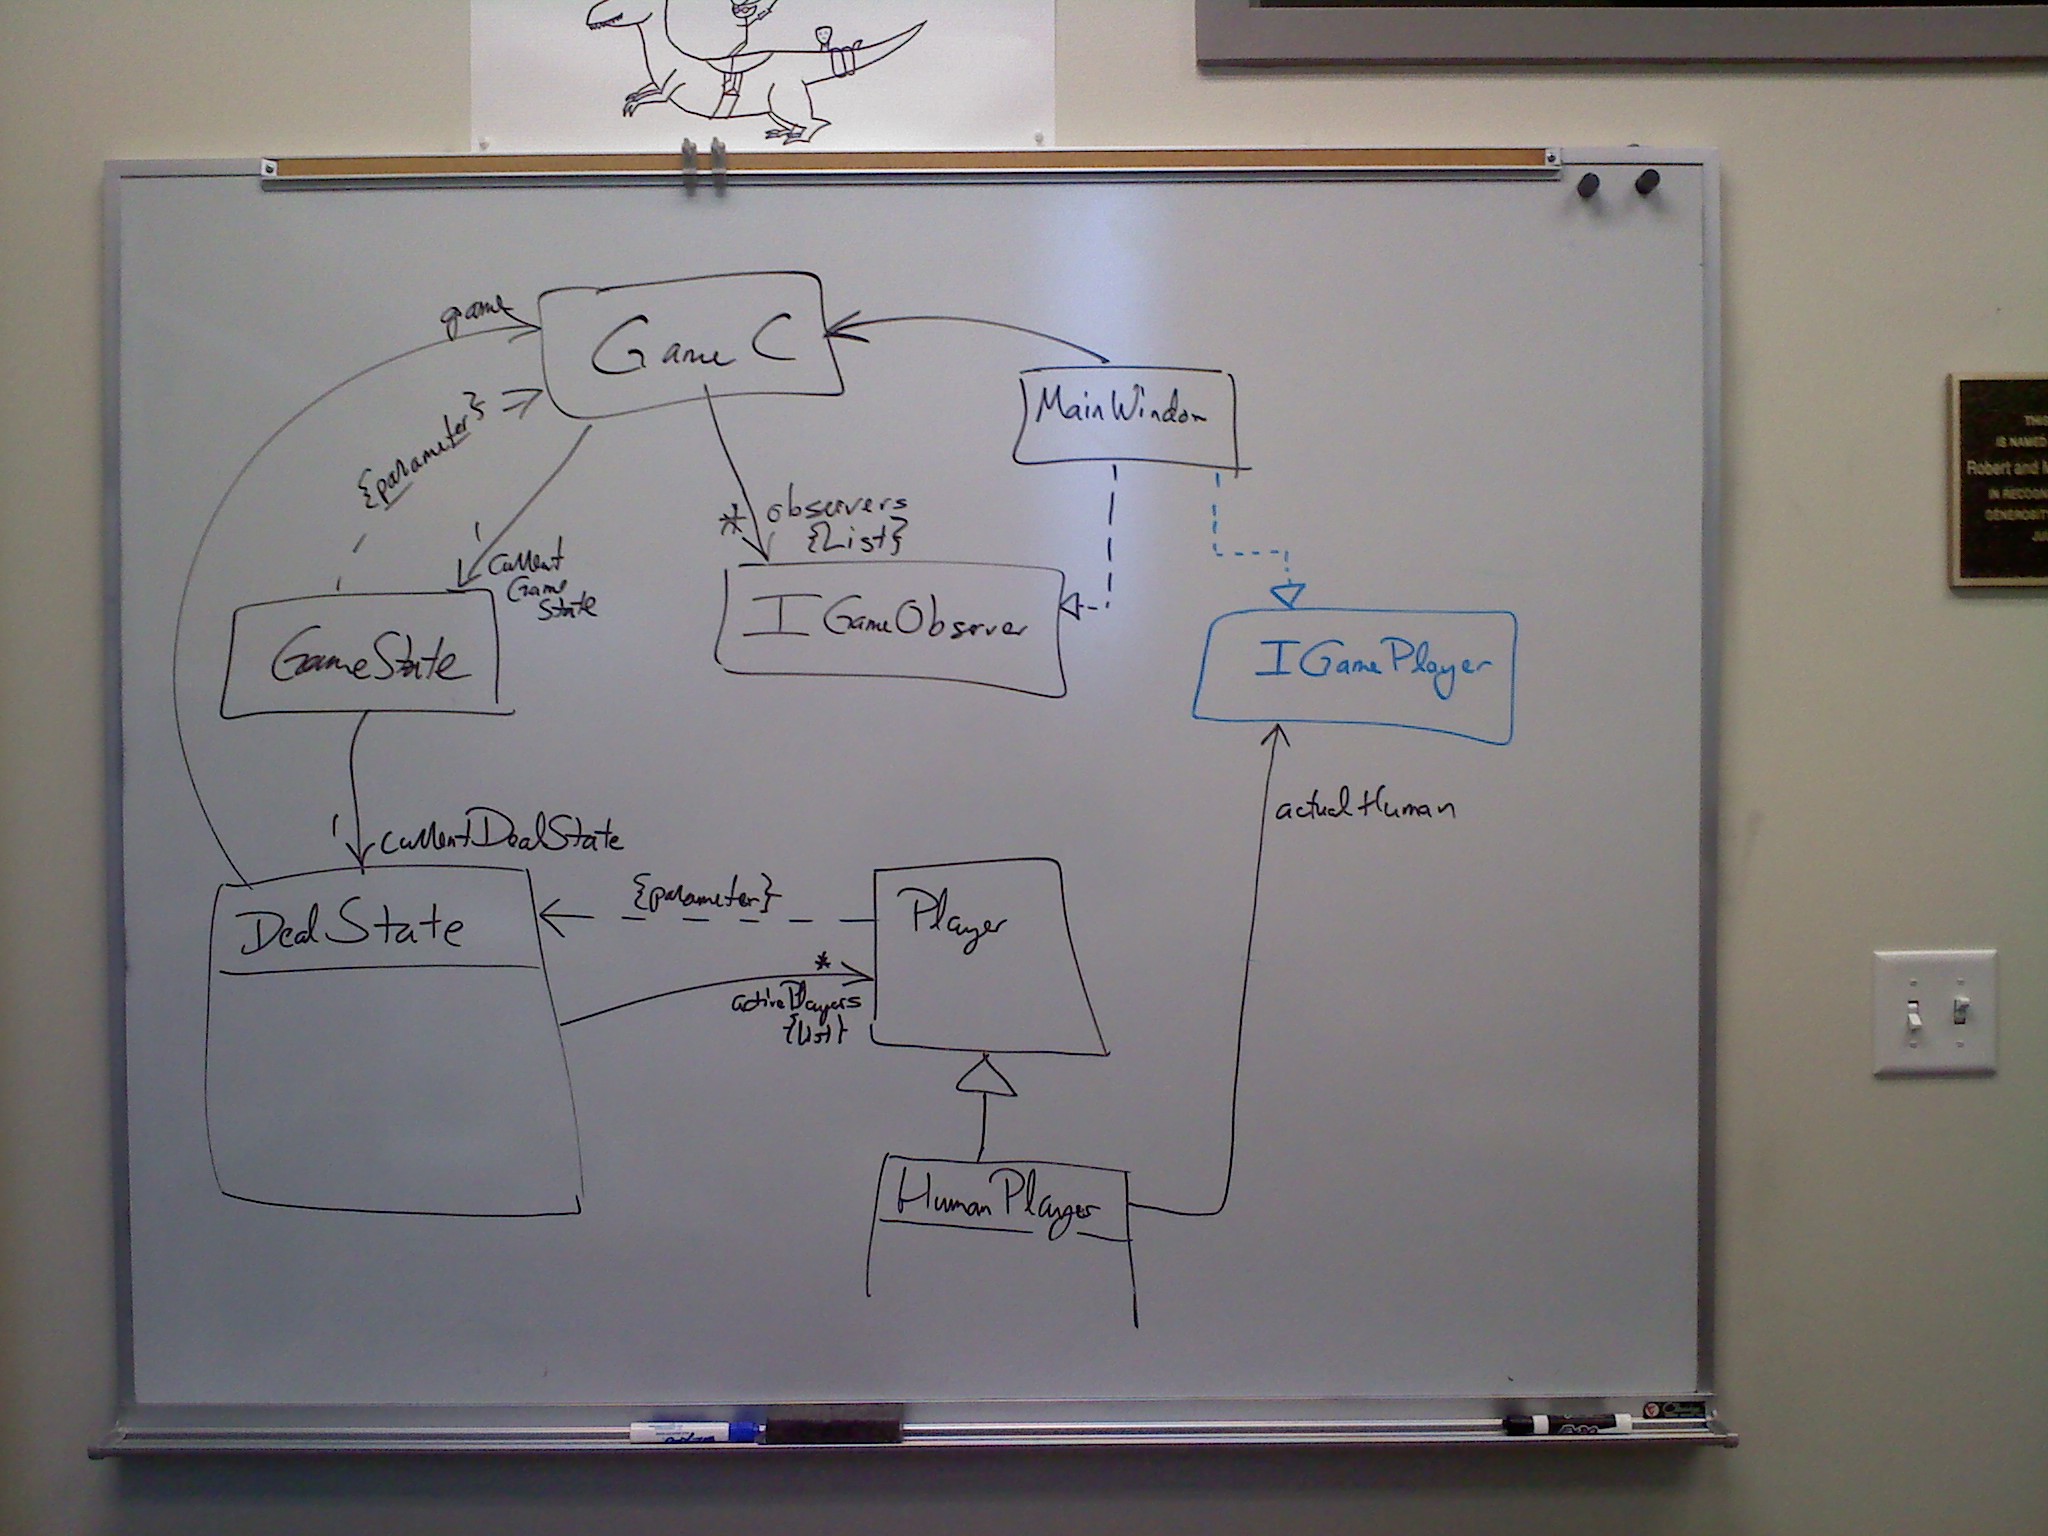 game
Game C
{parameter}
MainWindow
*
observers
{List}
1
current
Game
State
IGameObserver
GameState
IGamePlayer
actualHuman
1
currentDealState
{parameter}
DealState
Player
*
activePlayers
{List}
HumanPlayer
THIS
IS NAMED
Robert and M
IN RECOGN
GENEROSITY